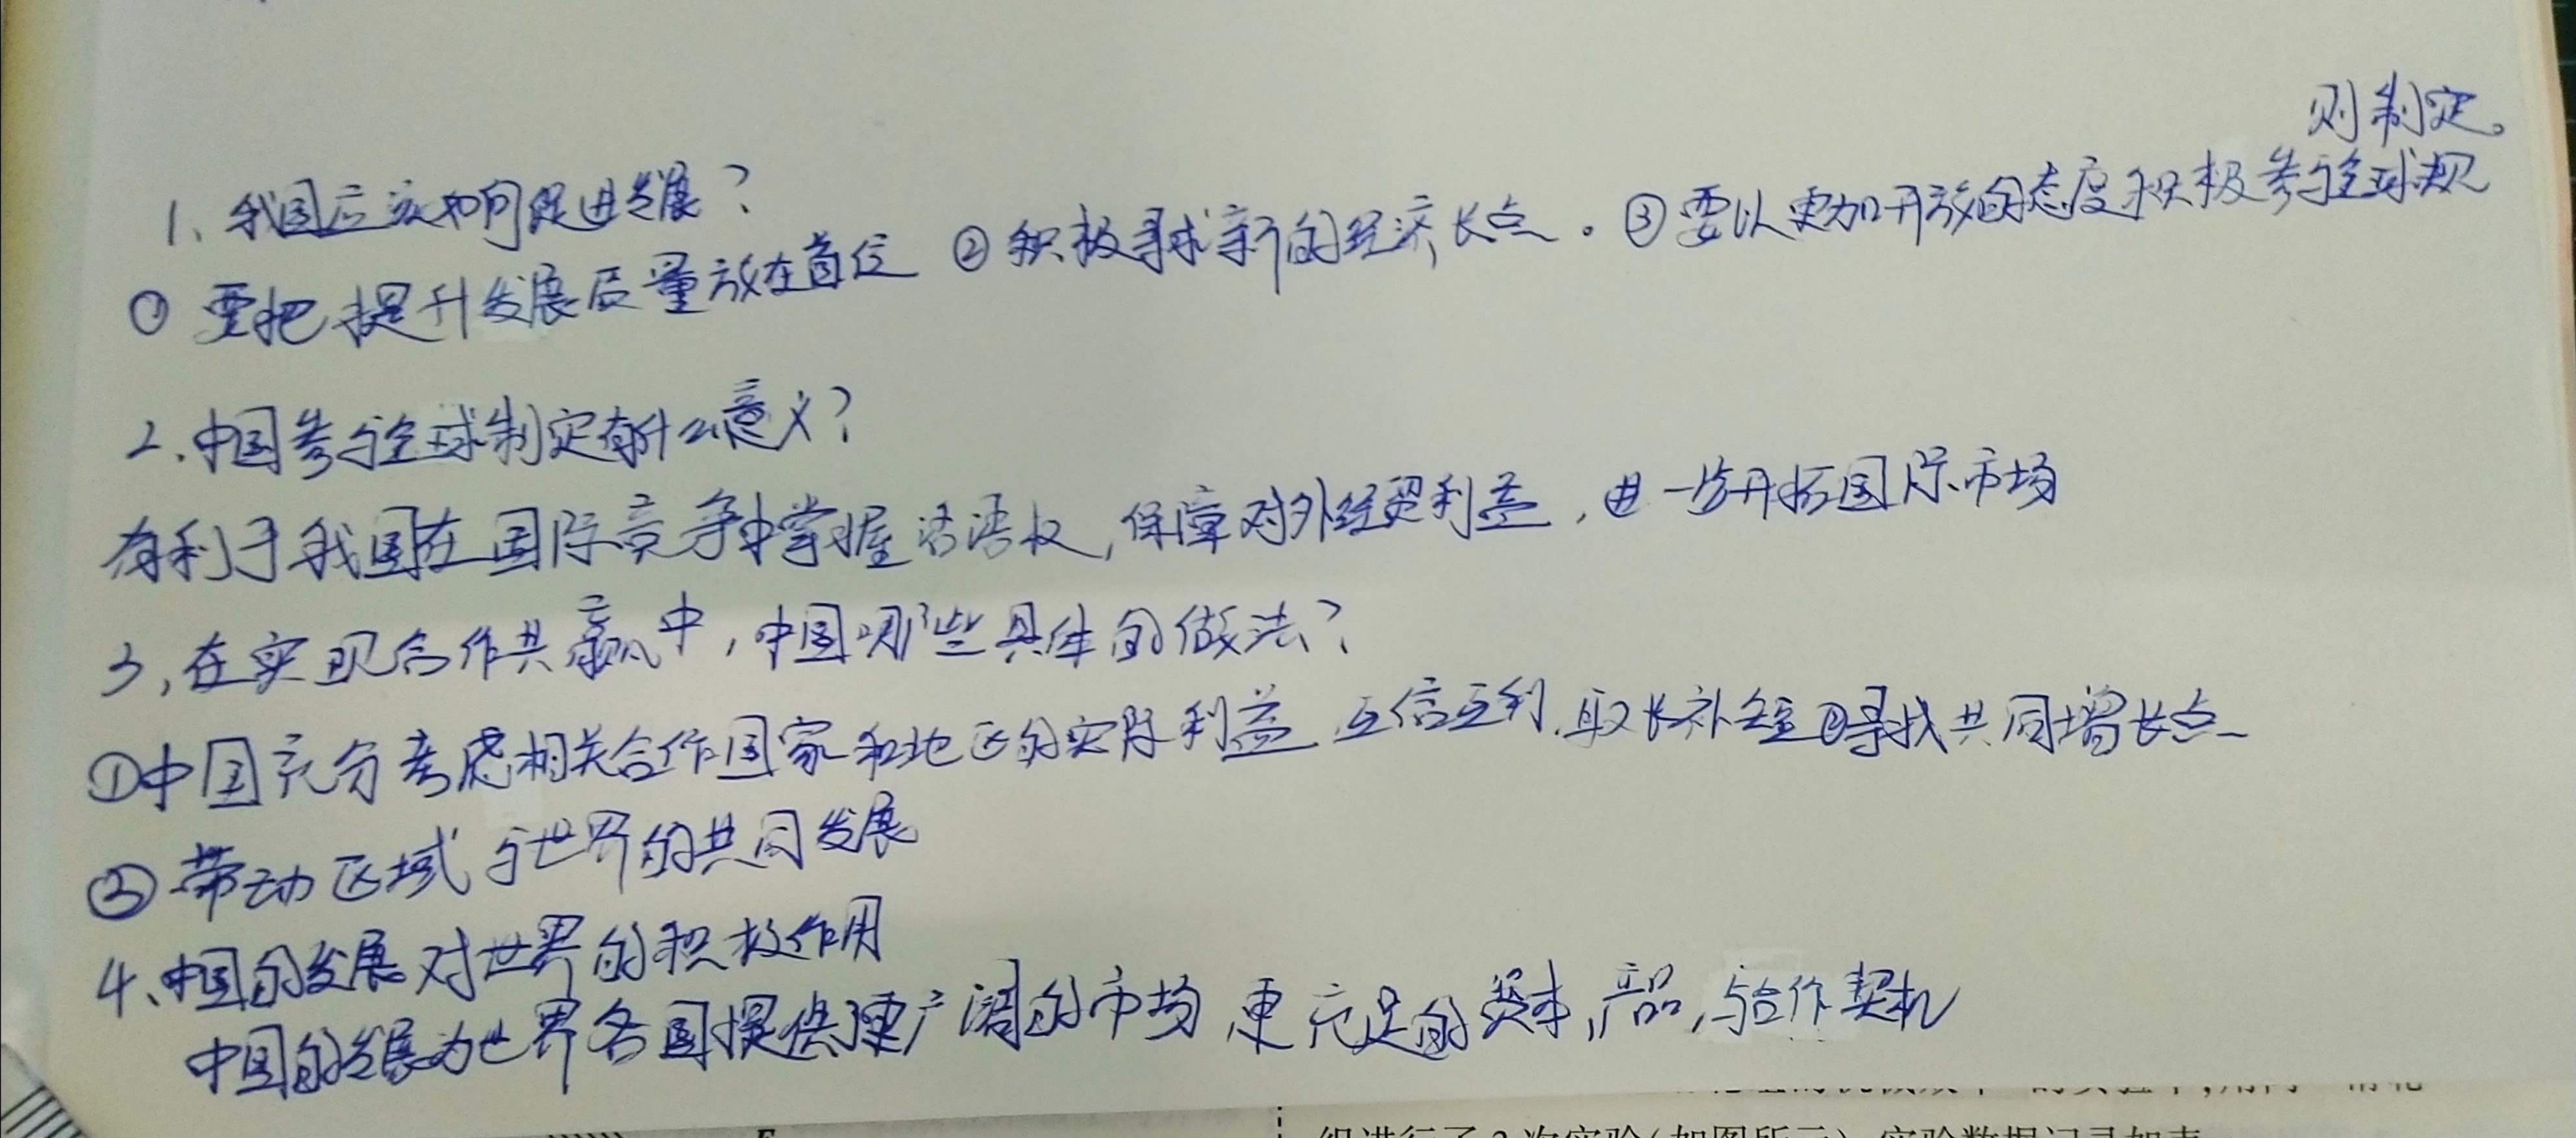 1、我国应该如何促进发展？
① 要把提升发展质量放在首位 ② 积极寻求新的经济长点。③ 要以更加开放的态度积极参与全球规
则制定。
2.中国参与全球制定有什么意义？
有利于我国在国际竞争中掌握话语权，保障对外经贸利益，进一步开拓国际市场
3，在实现合作共赢中，中国哪些具体的做法？
①中国充分考虑相关合作国家和地区的实际利益 互信互利.取长补短②寻找共同增长点
③ 带动区域与世界的共同发展
4、中国的发展对世界的积极作用
中国的发展为世界各国提供更广阔的市场 更充足的资本，产品，与合作契机
组进行了3次实验(如图所示)，实验数据记录如表